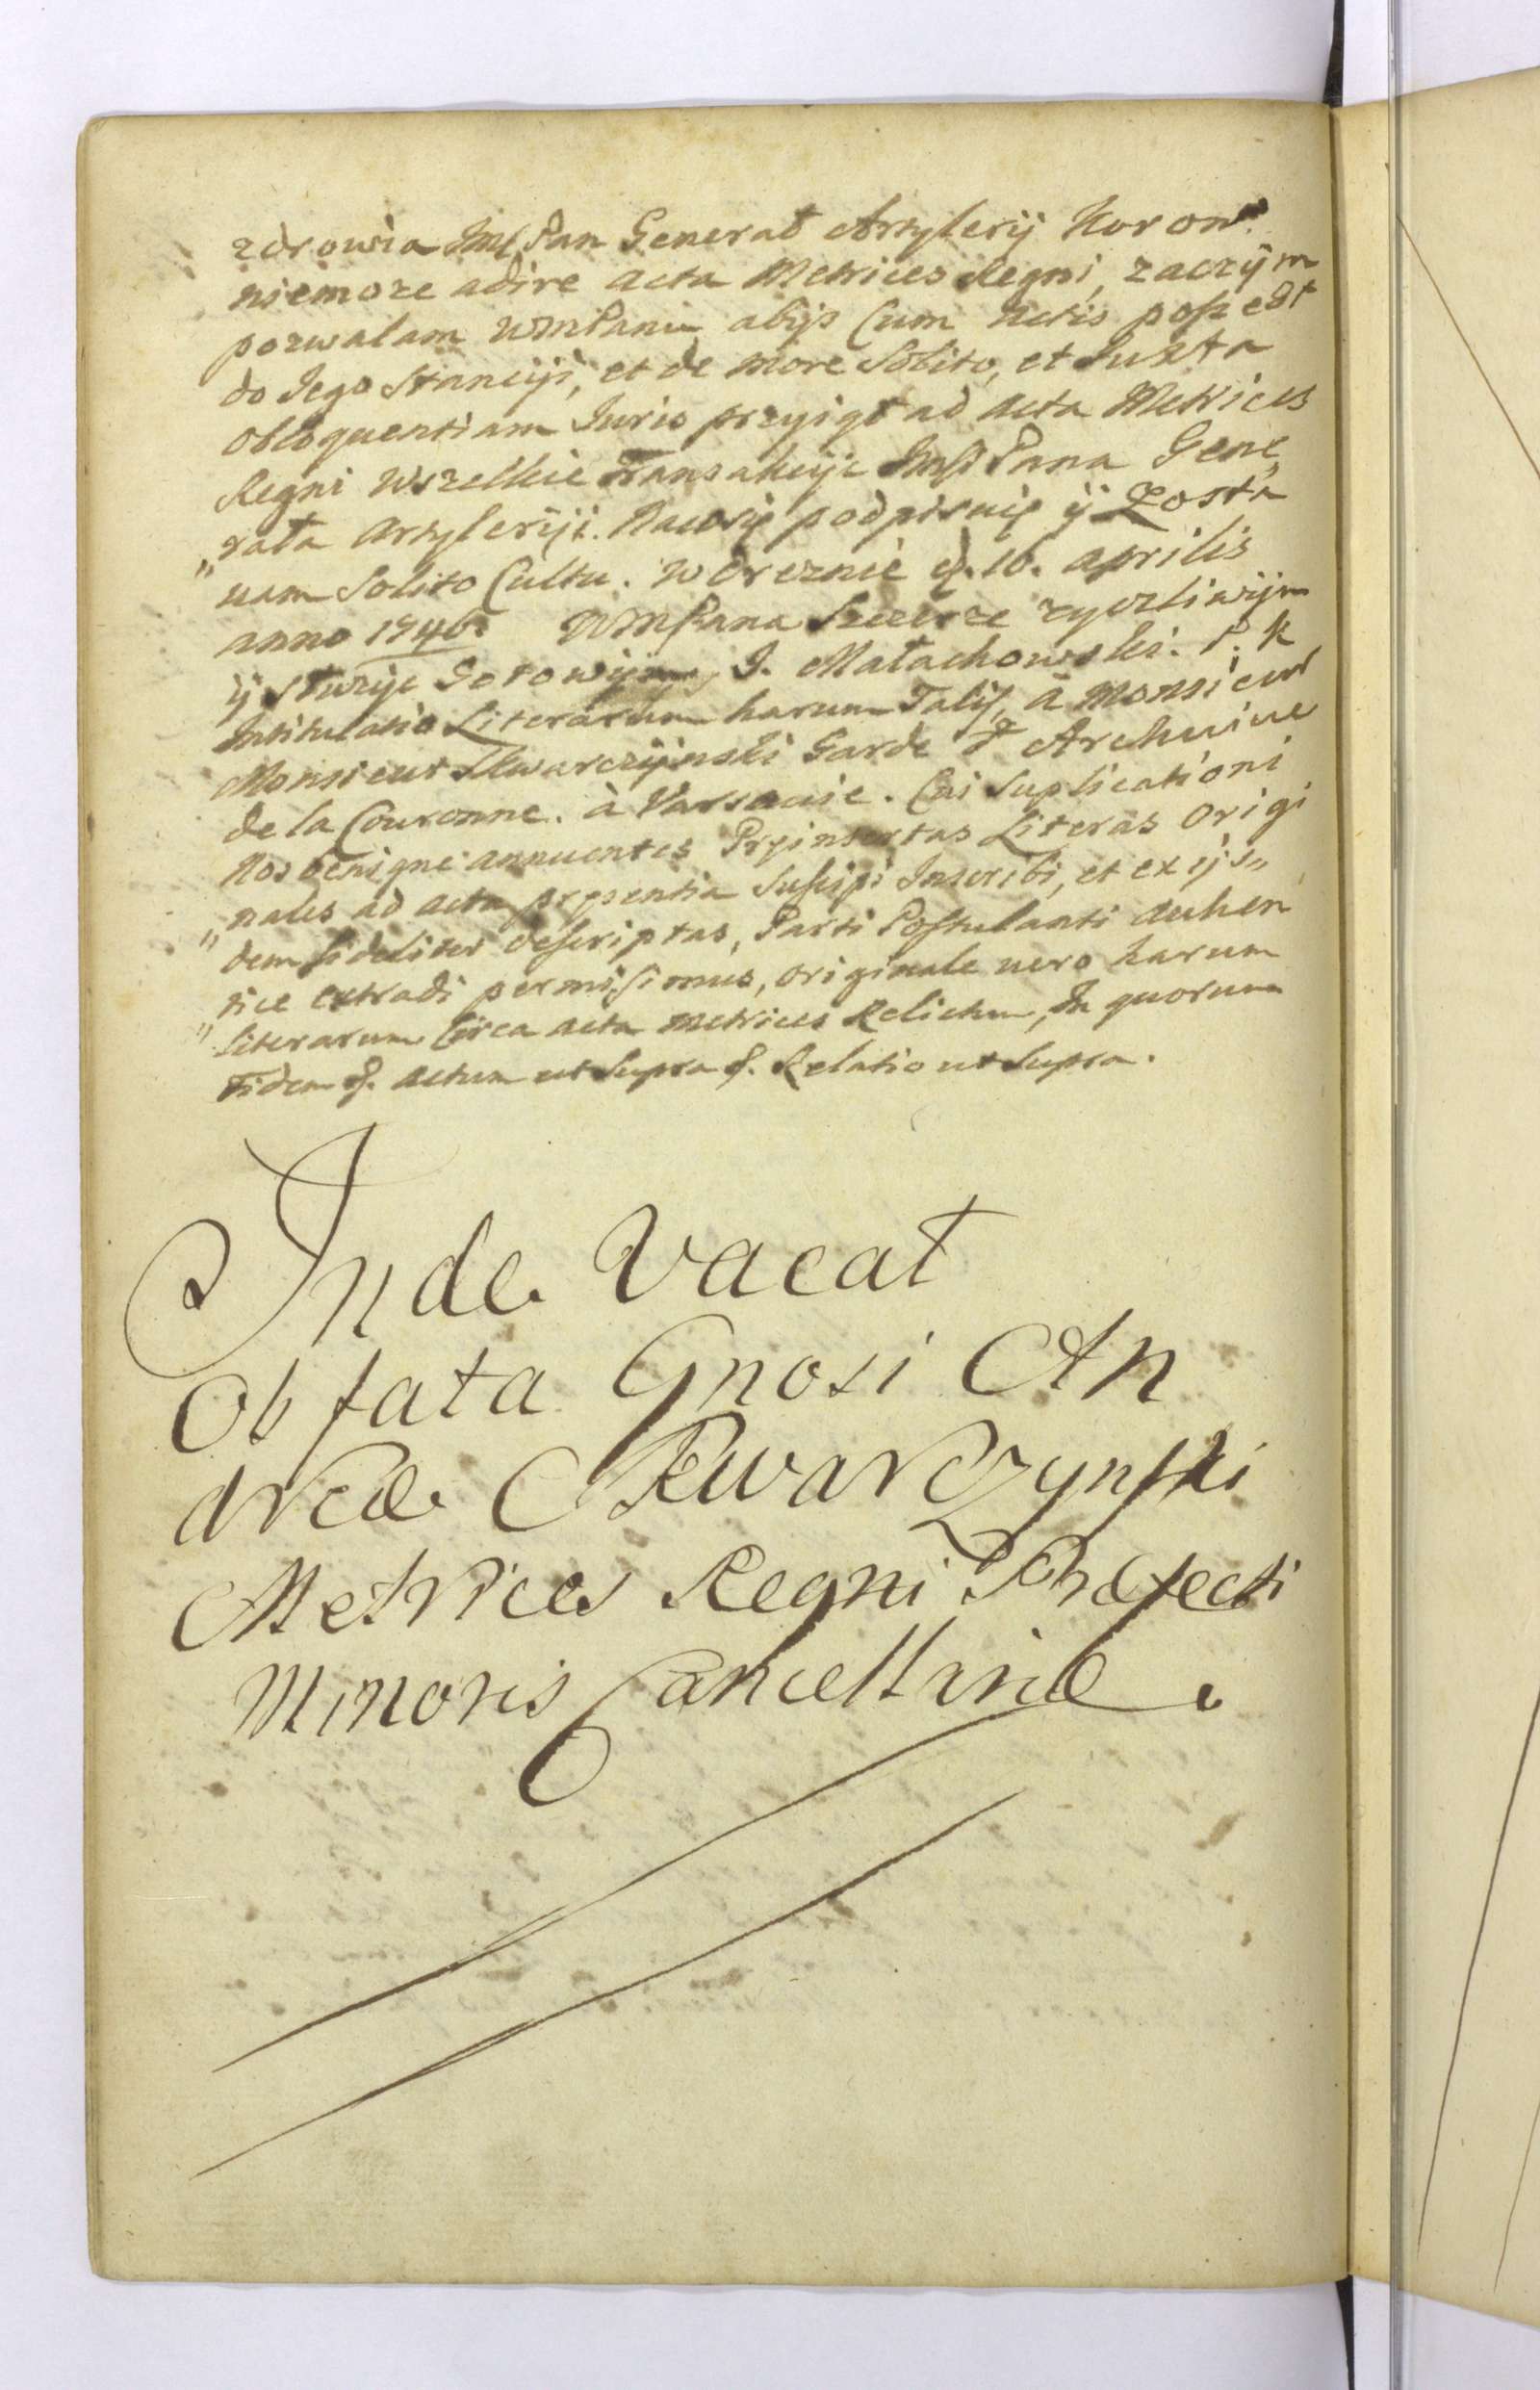 zdrowia Jmć Pan Generał Artylerij Koron.
niemoze adire acta Metrices Regni, zaczym
pozwalam WMPanu abys Cum Actis poszedł
do Jego Stancyi, et de more Solito, et Juxta
obloquentiam Juris przyiął ad acta Metrices
Regni wszelkie Transakcye Jmści Pana Gene
„rała Artylerÿi. Nacosię podpisuię ÿ Zosta
uam Solito Cultu. w Dreznie d. 10. aprilis
anno 1746. WMPana Szczerze zyczliwÿm
ÿ Słuzyc Gotowÿm, J. Małachowski. P. K
Intitulatio Literarum harum Talis, à Monsieur
Monsieur Skwarczÿnski Garde d' Archiue
de la Couronne. à Varsouie. Cui Suplicationi
Nos benigne annuentes Præinsertas Literas Origi
„nales ad acta præsentia Suscipi Inscribi, et ex ijs„
dem fideliter descriptas, Parti Postulanti authen
„tice extradi permisimus, originale uero harum
literarum Circa acta Metrices Relictum, In quorum
Fidem &. Actum ut Supra &. Relatio ut Supra.
Inde Vacat
Ob fata Gnosi An
dreæ Skwarczynski
Metrices Regni Præfecti
Minoris Cancellariæ.